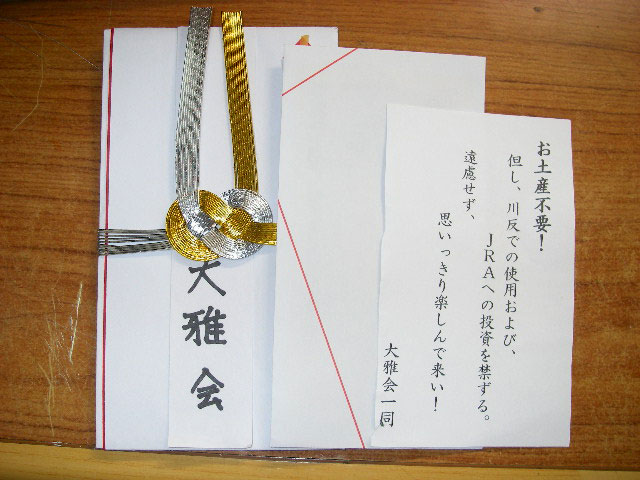 お土産不要！
但し、川反での使用および、
JRAへの投資を禁ずる。
遠慮せず、
思いっきり楽しんで来い！
大雅会一同
大雅会